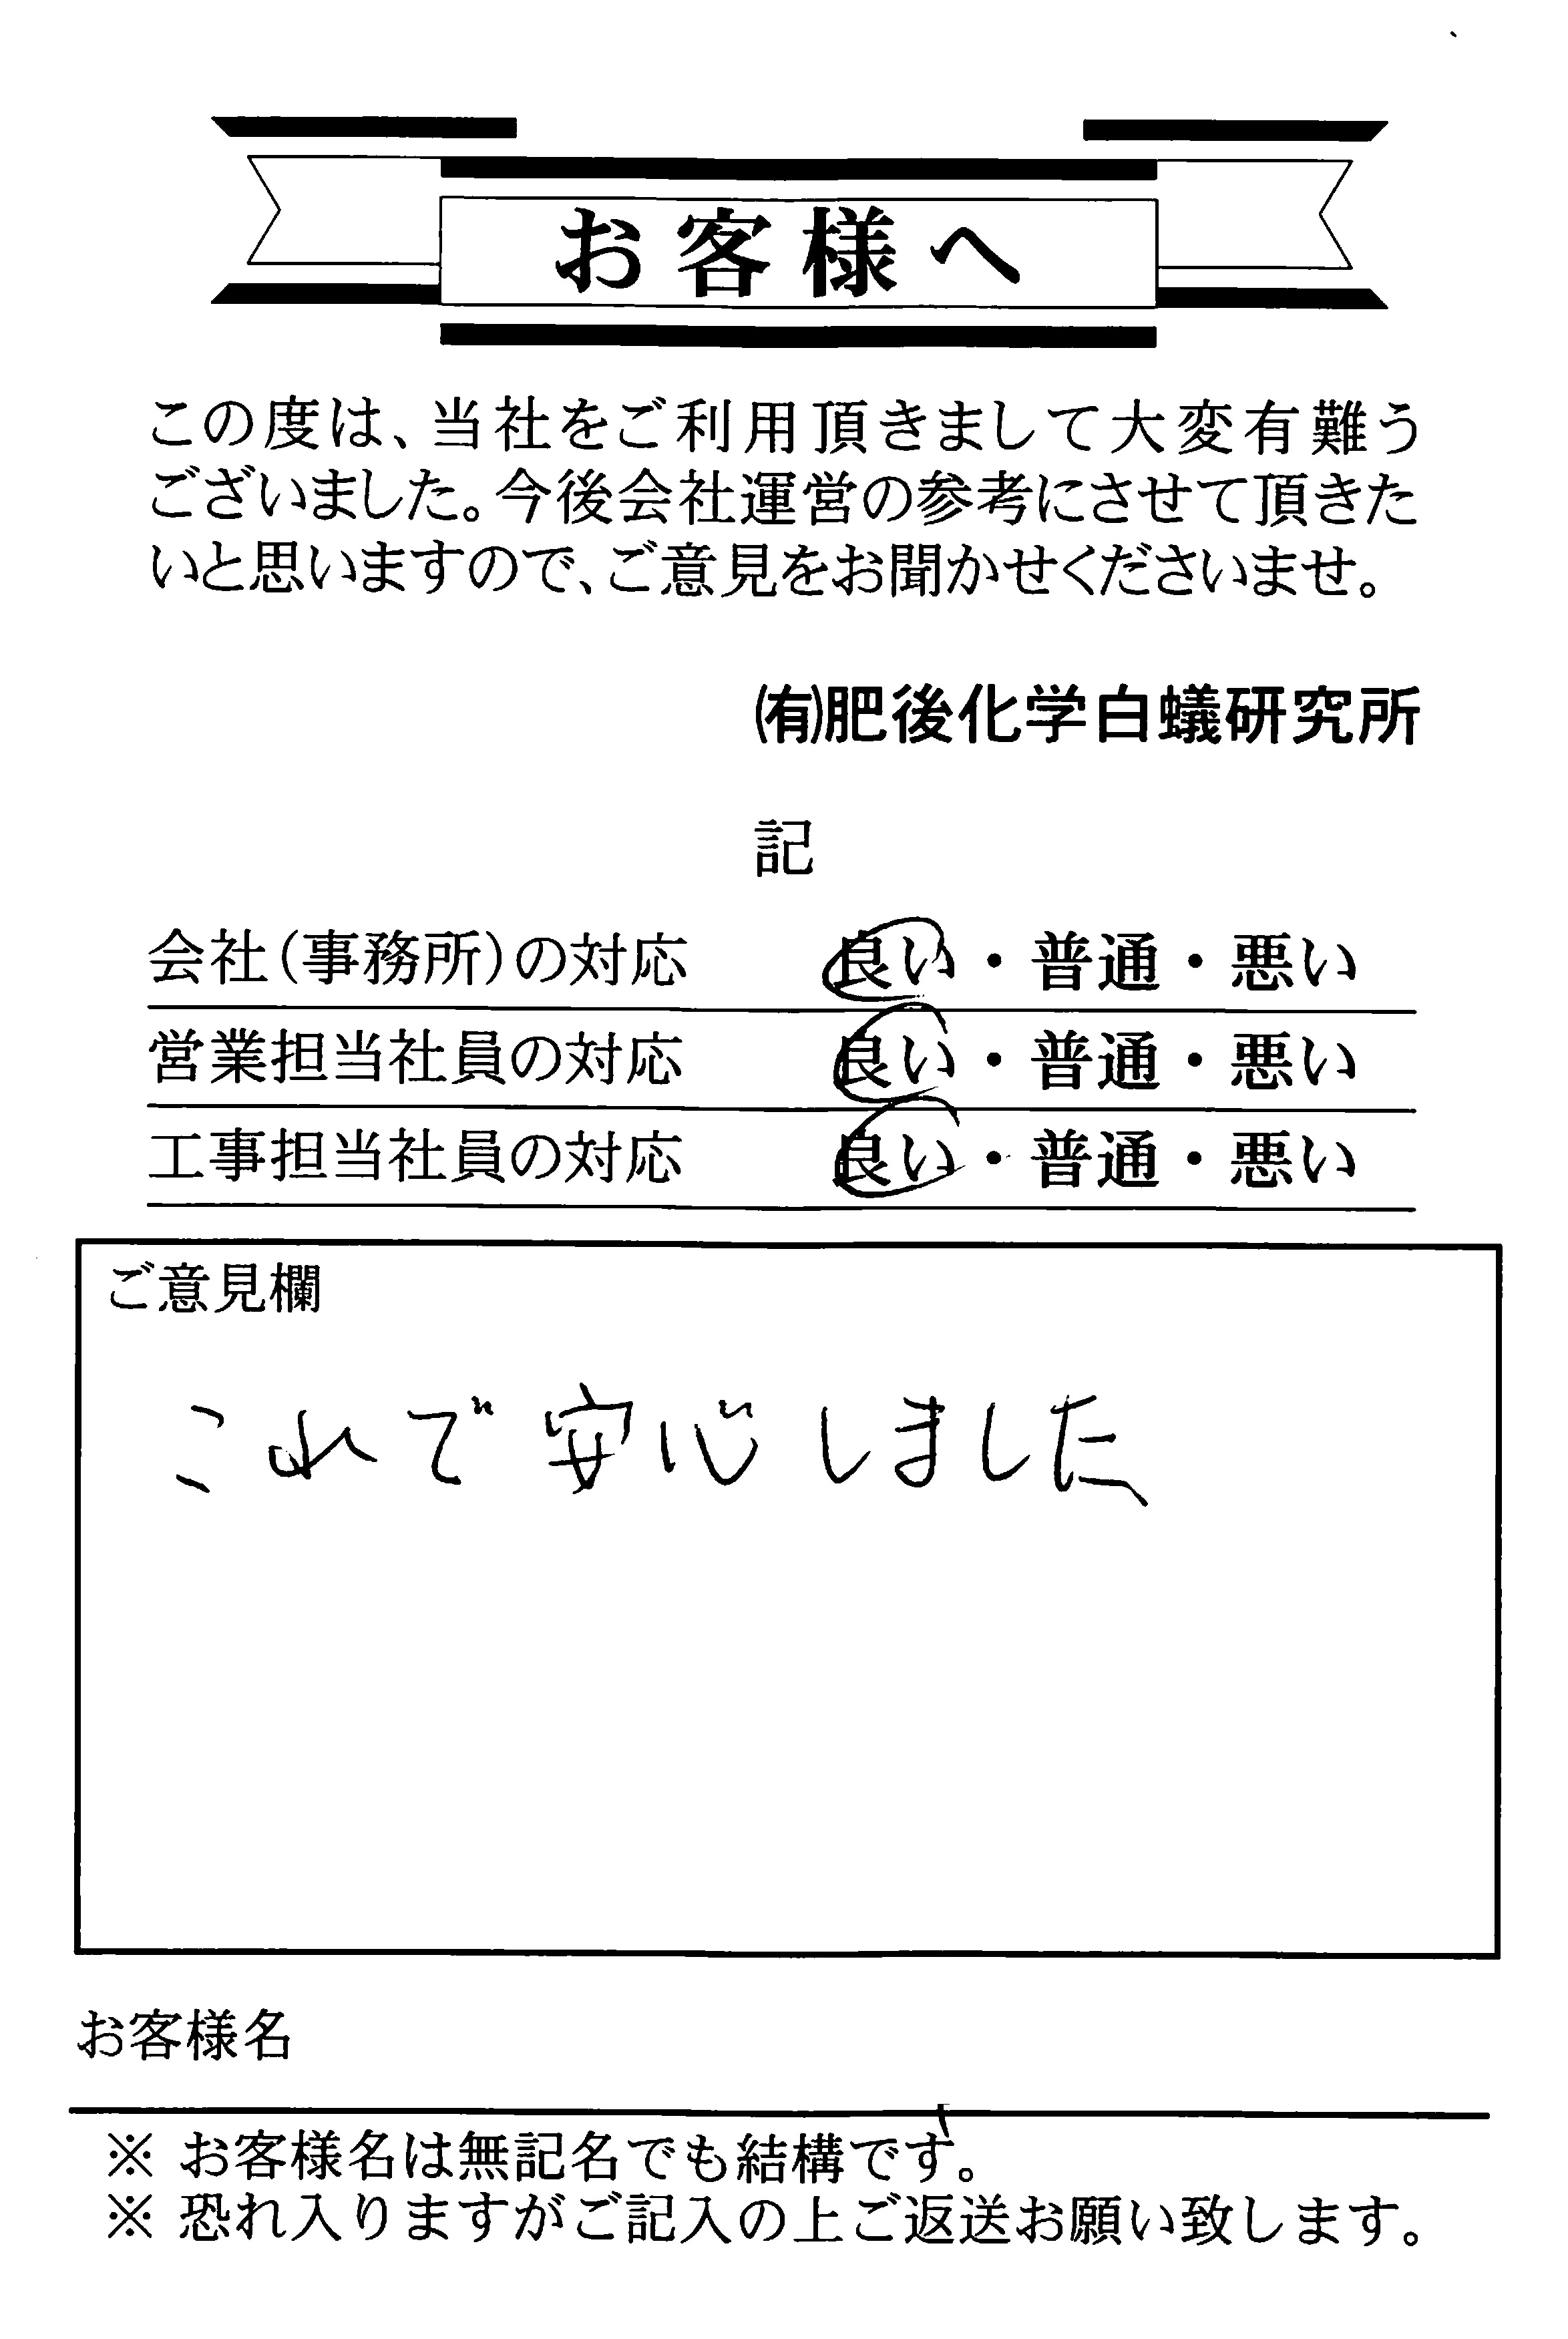 お客様へ
この度は、当社をご利用頂きまして大変有難う
ございました。今後会社運営の参考にさせて頂きた
いと思いますので、ご意見をお聞かせくださいませ。
㈲肥後化学白蟻研究所
記
会社(事務所)の対応 良い・普通・悪い
営業担当社員の対応 良い・普通・悪い
工事担当社員の対応 良い・普通・悪い
ご意見欄
これで安心しました
お客様名
※ お客様名は無記名でも結構です。
※ 恐れ入りますがご記入の上ご返送お願い致します。